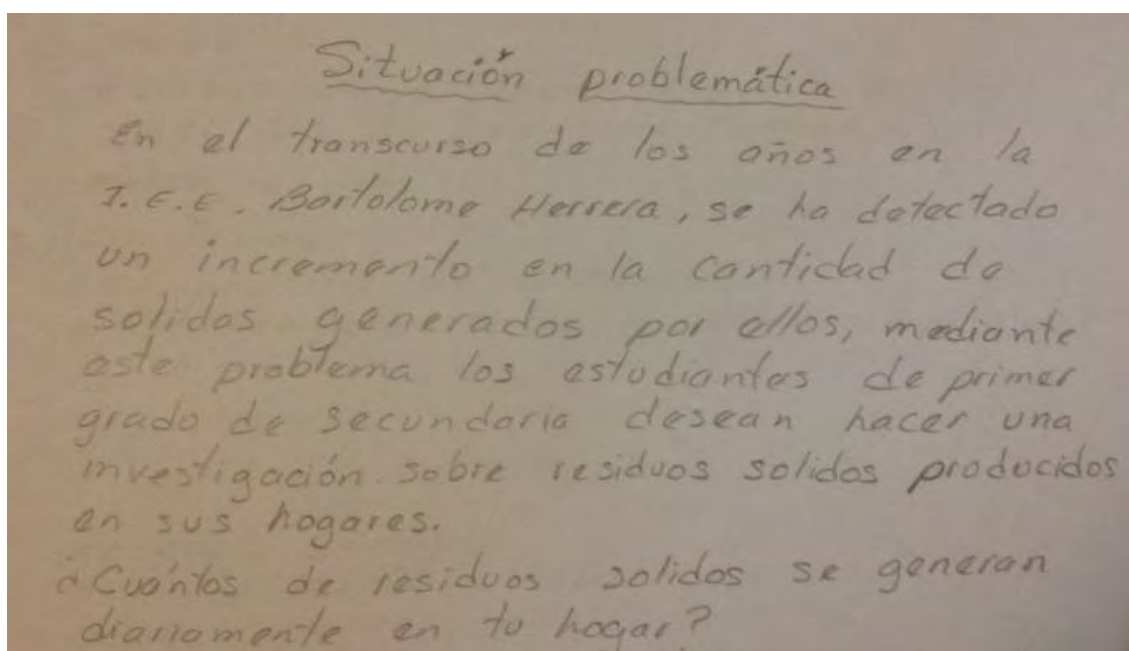 Situación problemática
En el transcurso de los años en la
I.E.E. Bartolome Herrera, se ha detectado
un incremento en la cantidad de
solidos generados por ellos, mediante
este problema los estudiantes de primer
grado de secundaria desean hacer una
investigación sobre residuos solidos producidos
en sus hogares.
¿Cuántos de residuos solidos se generan
diariamente en tu hogar?